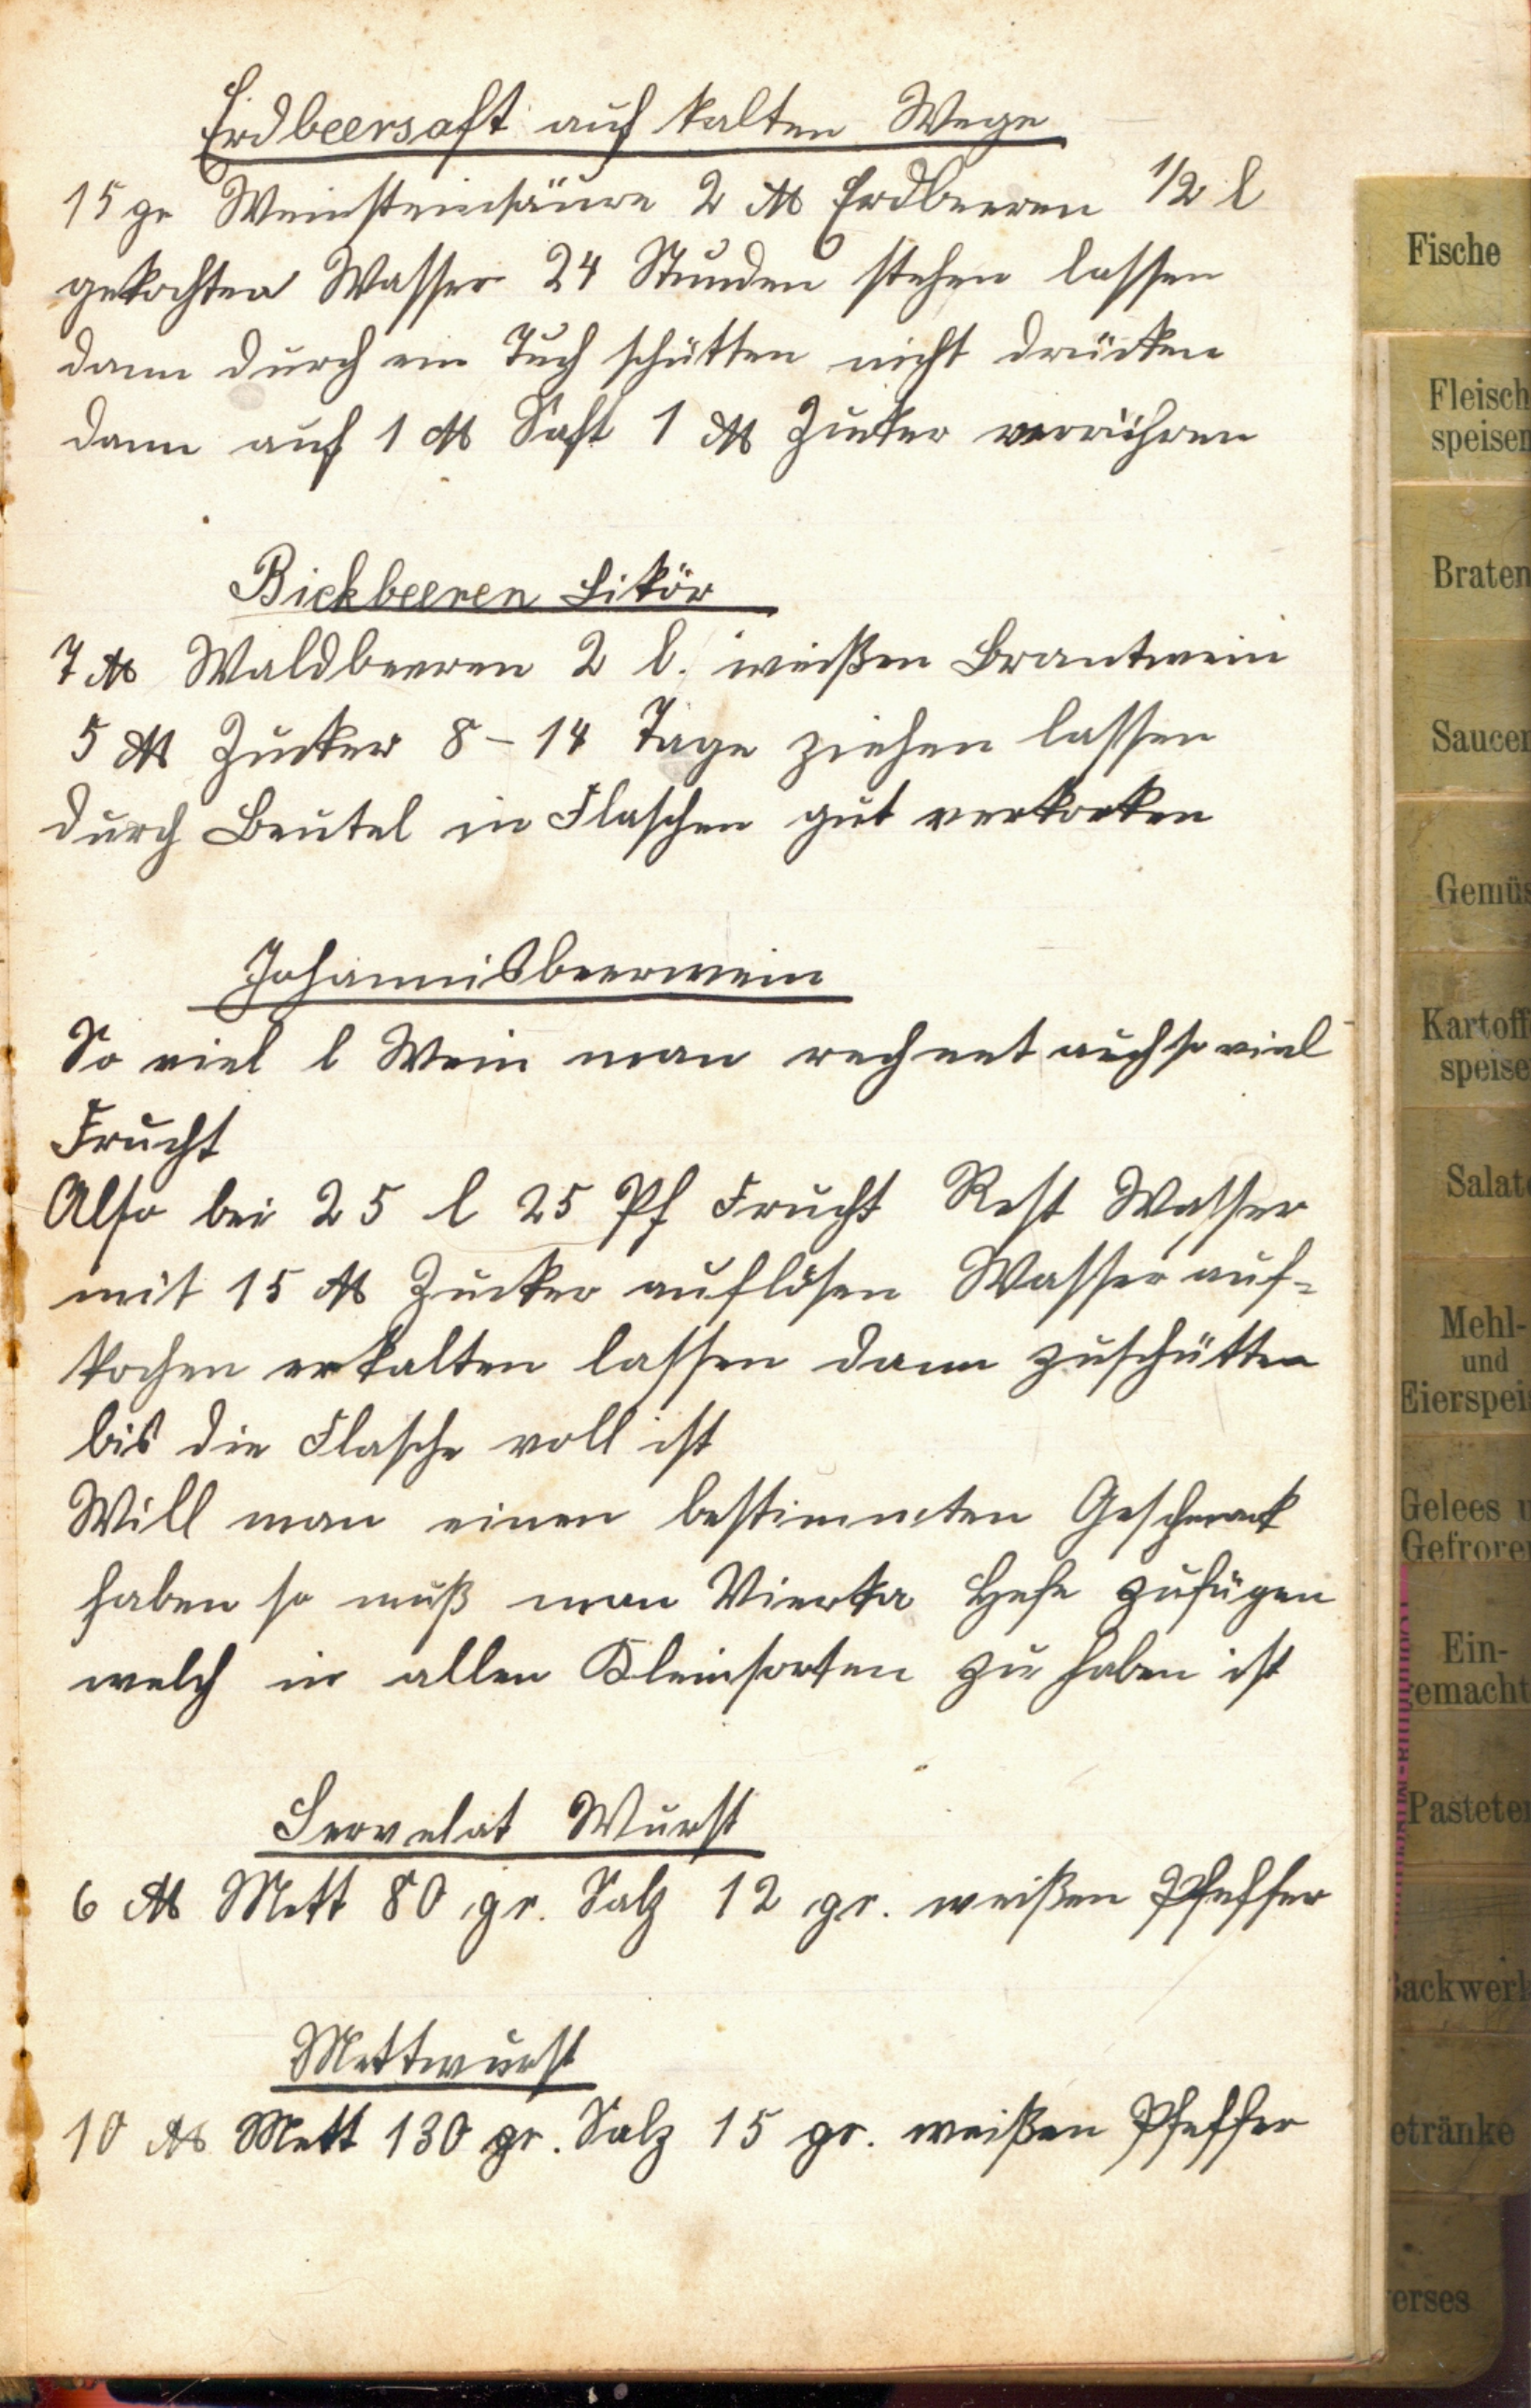 Erdbeersaft auf kalten Wege
15 gr Weinsteinsäure 2 ℔ Erdbeeren 1/2 l
gekochten Wasser 24 Stunden stehen lassen
dann durch ein Tuch schütten nicht drücken
dann auf 1 ℔ Saft 1 ℔ Zucker verrühren
Bickbeeren Likör
7 ℔ Waldbeeren 2 l. weißen Brantwein
5 ℔ Zucker 8-14 Tage ziehen lassen
durch Beutel in Flaschen gut verkorken
Johannisbeerwein
So viel l Wein man rechnet auch so viel
Frucht
Also bei 25 l 25 Pf Frucht Rest Wasser
mit 15 ℔ Zucker auflösen Wasser auf-
kochen erkalten lassen dann zuschütten
bis die Flasche voll ist
Will man einen bestimmten Geschmack
haben so muß man Vierka Hefe zufügen
welch in allen Kleinsorten zu haben ist
Servelat Wurst
6 ℔ Mett 80 gr. Salz 12 gr. weißen Pfeffer
Mettwurst
10 ℔ Mett 130 gr. Salz 15 gr. weißen Pfeffer
Fische
Fleisch
speisen
Braten
Saucen
Gemüs
Kartoff
speise
Salate
Mehl-
und
Eierspeis
Gelees u
Gefroren
Ein-
gemacht
Pasteten
Backwerk
etränke
erses